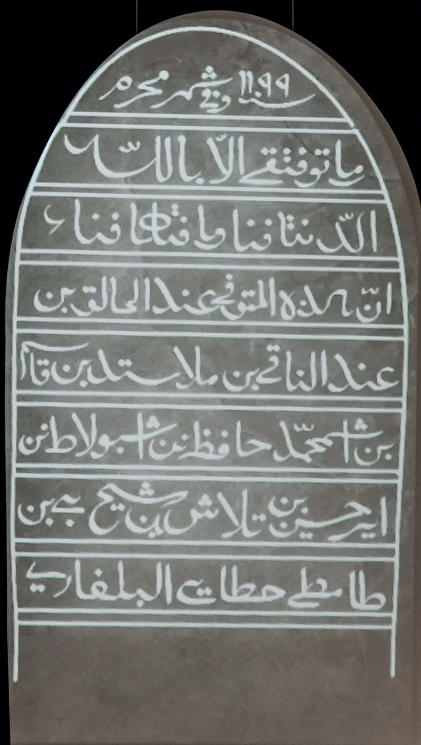 سنة ١١٩٩ وفي شهر محرم
ما توفيقي الا بالله
الدنيا فنا وافتها فناء
ان هذه المتوفى عبد الخالق بن
عبد الباقي بن ملا سيد بن
بن شاه محمد حافظ بن شاه بولاط بن
امير حسين بن تلاش بن شيخ بي بن
البلغاري